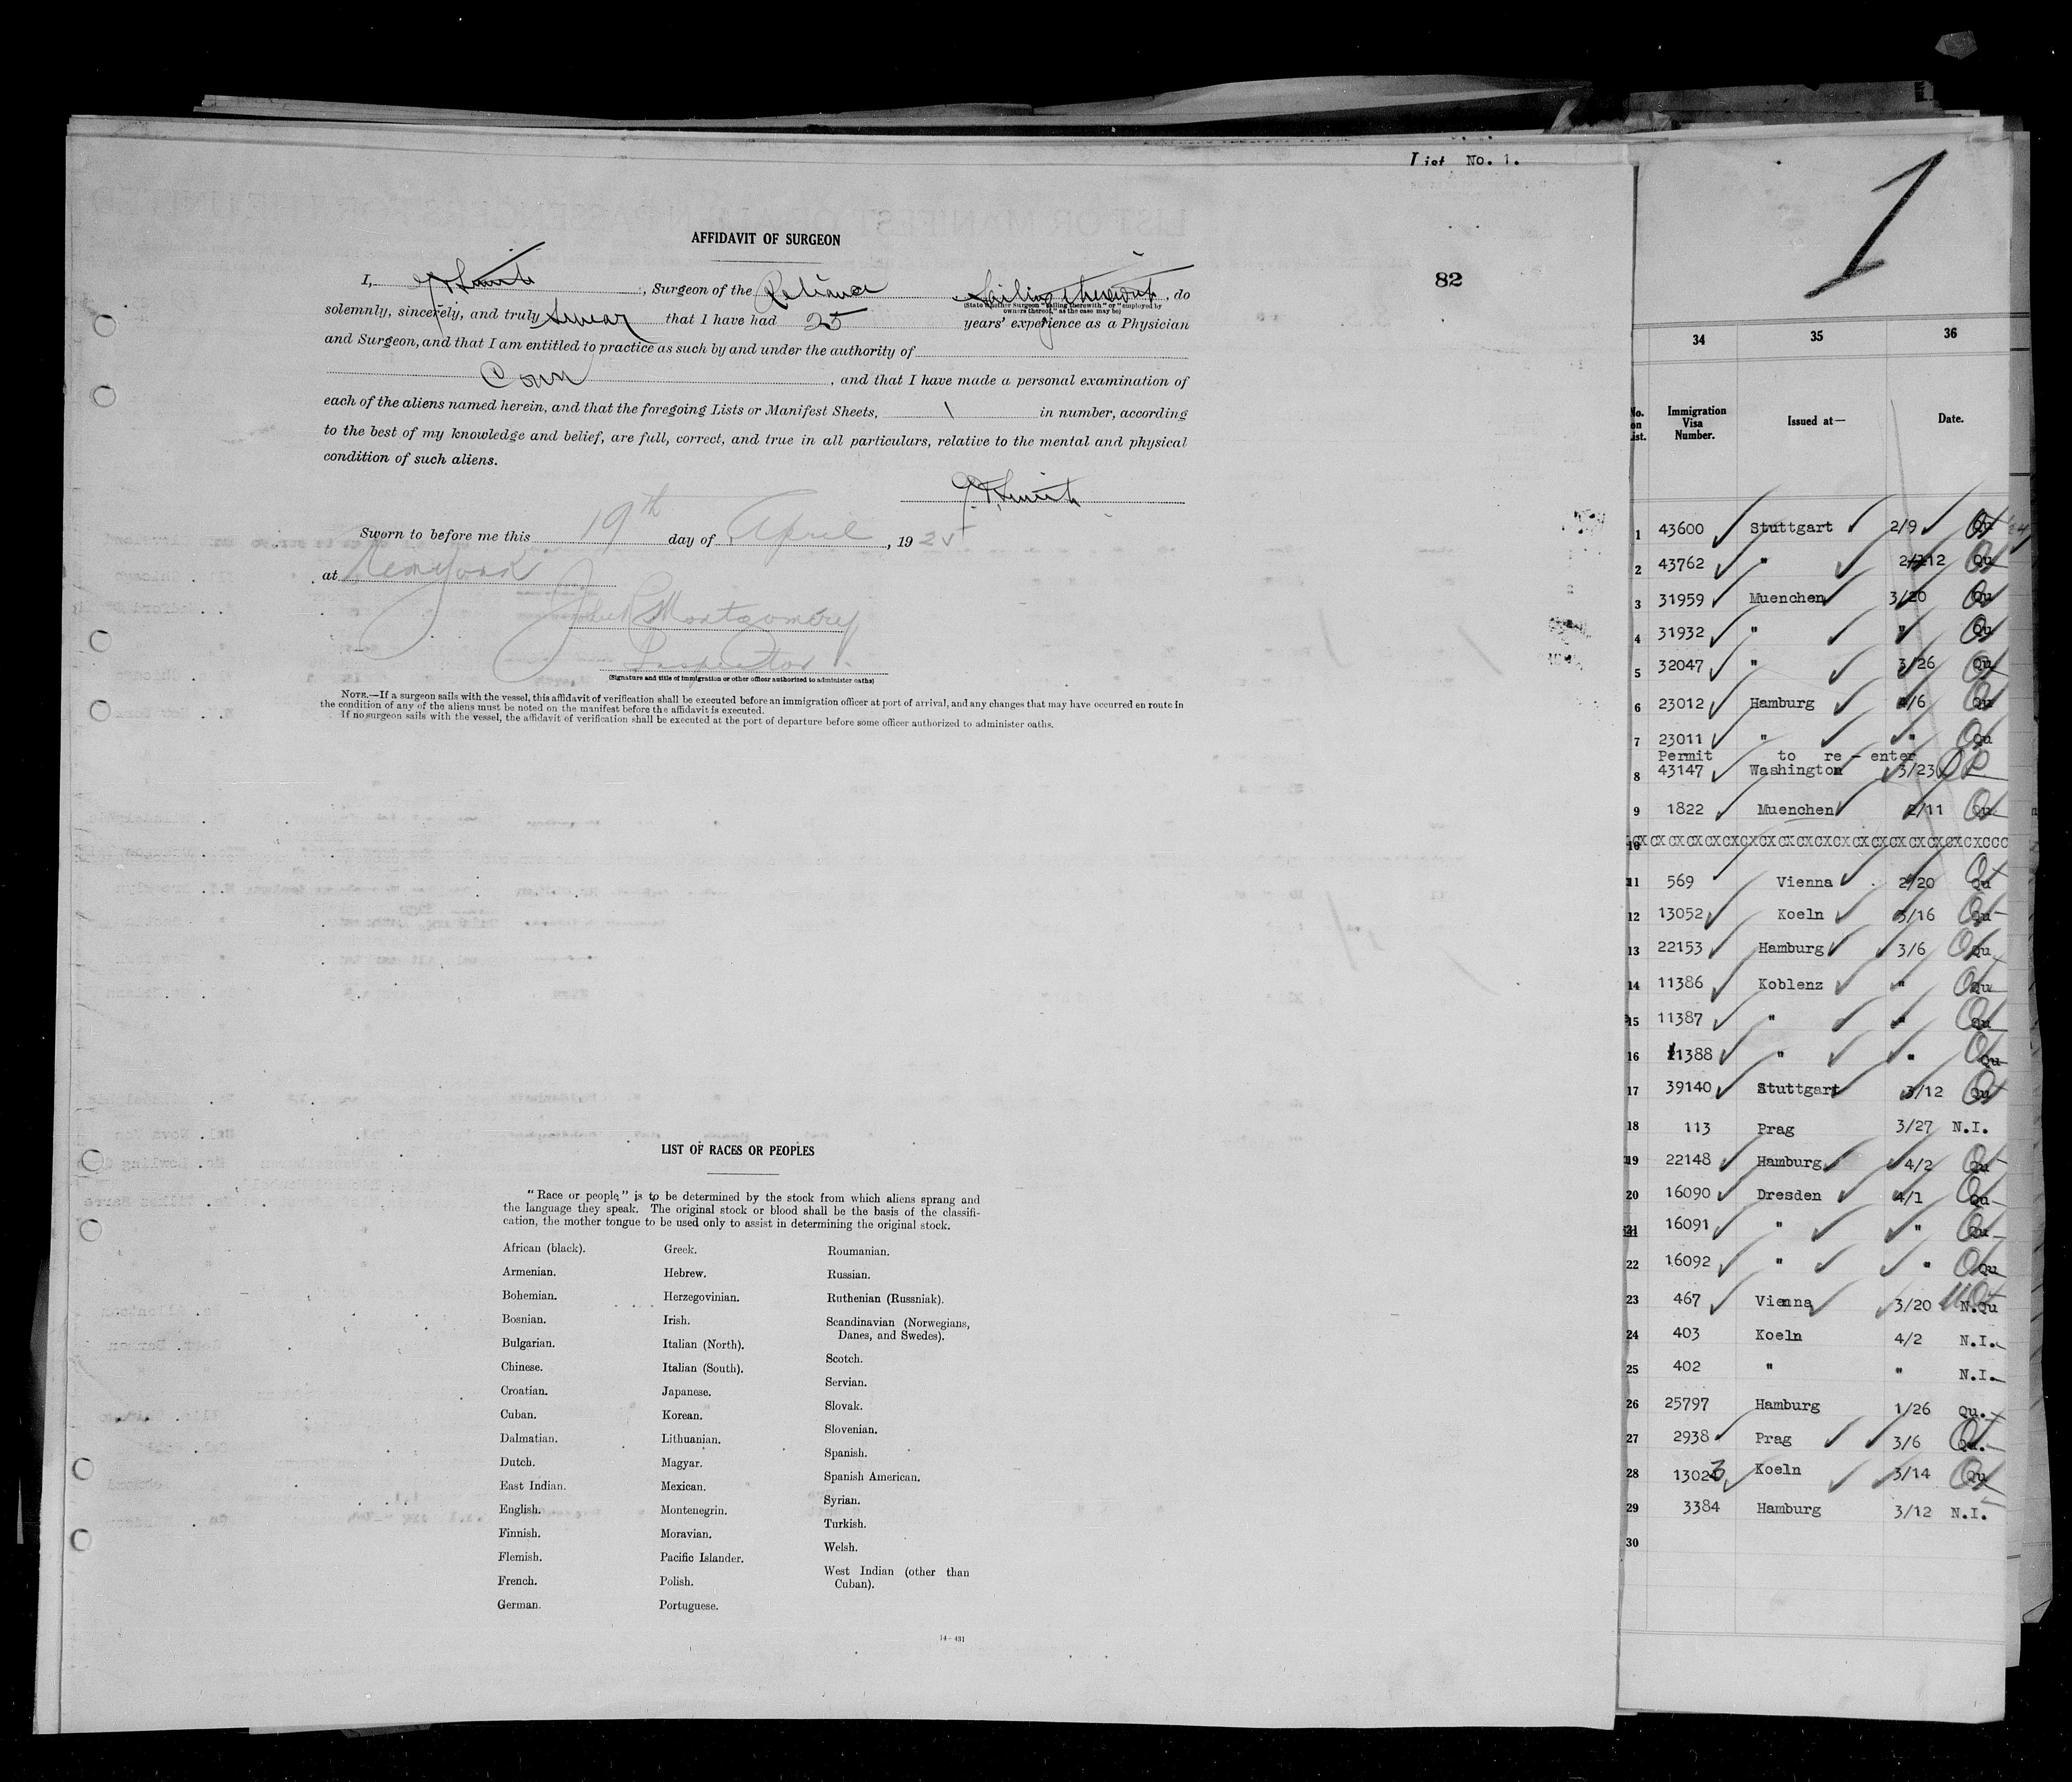 List No. 1.
AFFIDAVIT OF SURGEON
82
I, Smith, Surgeon of the Reliance Sailing therewith, do
(State whether Surgeon "sailing therewith" or "employed by
owners thereof," as the case may be)
solemnly, sincerely, and truly swear that I have had 25 years' experience as a Physician
and Surgeon, and that I am entitled to practice as such by and under the authority of
Conn, and that I have made a personal examination of
each of the aliens named herein, and that the foregoing Lists or Manifest Sheets, 1 in number, according
to the best of my knowledge and belief, are full, correct, and true in all particulars, relative to the mental and physical
condition of such aliens.
Smith
Sworn to before me this 19th day of April, 1925
at New York
Montgomery
Inspector
(Signature and title of immigration or other officer authorized to administer oaths)
NOTE.—If a surgeon sails with the vessel, this affidavit of verification shall be executed before an immigration officer at port of arrival, and any changes that may have occurred en route in
the condition of any of the aliens must be noted on the manifest before the affidavit is executed.
If no surgeon sails with the vessel, the affidavit of verification shall be executed at the port of departure before some officer authorized to administer oaths.
LIST OF RACES OR PEOPLES
"Race or people" is to be determined by the stock from which aliens sprang and
the language they speak. The original stock or blood shall be the basis of the classifi-
cation, the mother tongue to be used only to assist in determining the original stock.
African (black).
Armenian.
Bohemian.
Bosnian.
Bulgarian.
Chinese.
Croatian.
Cuban.
Dalmatian.
Dutch.
East Indian.
English.
Finnish.
Flemish.
French.
German.
Greek.
Hebrew.
Herzegovinian.
Irish.
Italian (North).
Italian (South).
Japanese.
Korean.
Lithuanian.
Magyar.
Mexican.
Montenegrin.
Moravian.
Pacific Islander.
Polish.
Portuguese.
Roumanian.
Russian.
Ruthenian (Russniak).
Scandinavian (Norwegians,
Danes, and Swedes).
Scotch.
Servian.
Slovak.
Slovenian.
Spanish.
Spanish American.
Syrian.
Turkish.
Welsh.
West Indian (other than
Cuban).
14—431
1
34 35 36
No. on List. Immigration Visa Number. Issued at— Date.
1 43600 Stuttgart 2/9 Qu
2 43762 " 2/12 Qu
3 31959 Muenchen 3/20 Qu
4 31932 " " Qu
5 32047 " 3/26 Qu
6 23012 Hamburg 4/6 Qu
7 23011 " " Qu
Permit to re-enter
8 43147 Washington 3/23
9 1822 Muenchen 2/11 Qu
10
11 569 Vienna 2/20 Qu
12 13052 Koeln 3/16 Qu
13 22153 Hamburg 3/6 Qu
14 11386 Koblenz " Qu
15 11387 " " Qu
16 11388 " " Qu
17 39140 Stuttgart 3/12 Qu
18 113 Prag 3/27 N.I.
19 22148 Hamburg 4/2 Qu
20 16090 Dresden 4/1 Qu
21 16091 " " Qu
22 16092 " " Qu
23 467 Vienna 3/20 N.Qu
24 403 Koeln 4/2 N.I.
25 402 " " N.I.
26 25797 Hamburg 1/26 Qu.
27 2938 Prag 3/6 Qu.
28 13023 Koeln 3/14 Qu
29 3384 Hamburg 3/12 N.I.
30